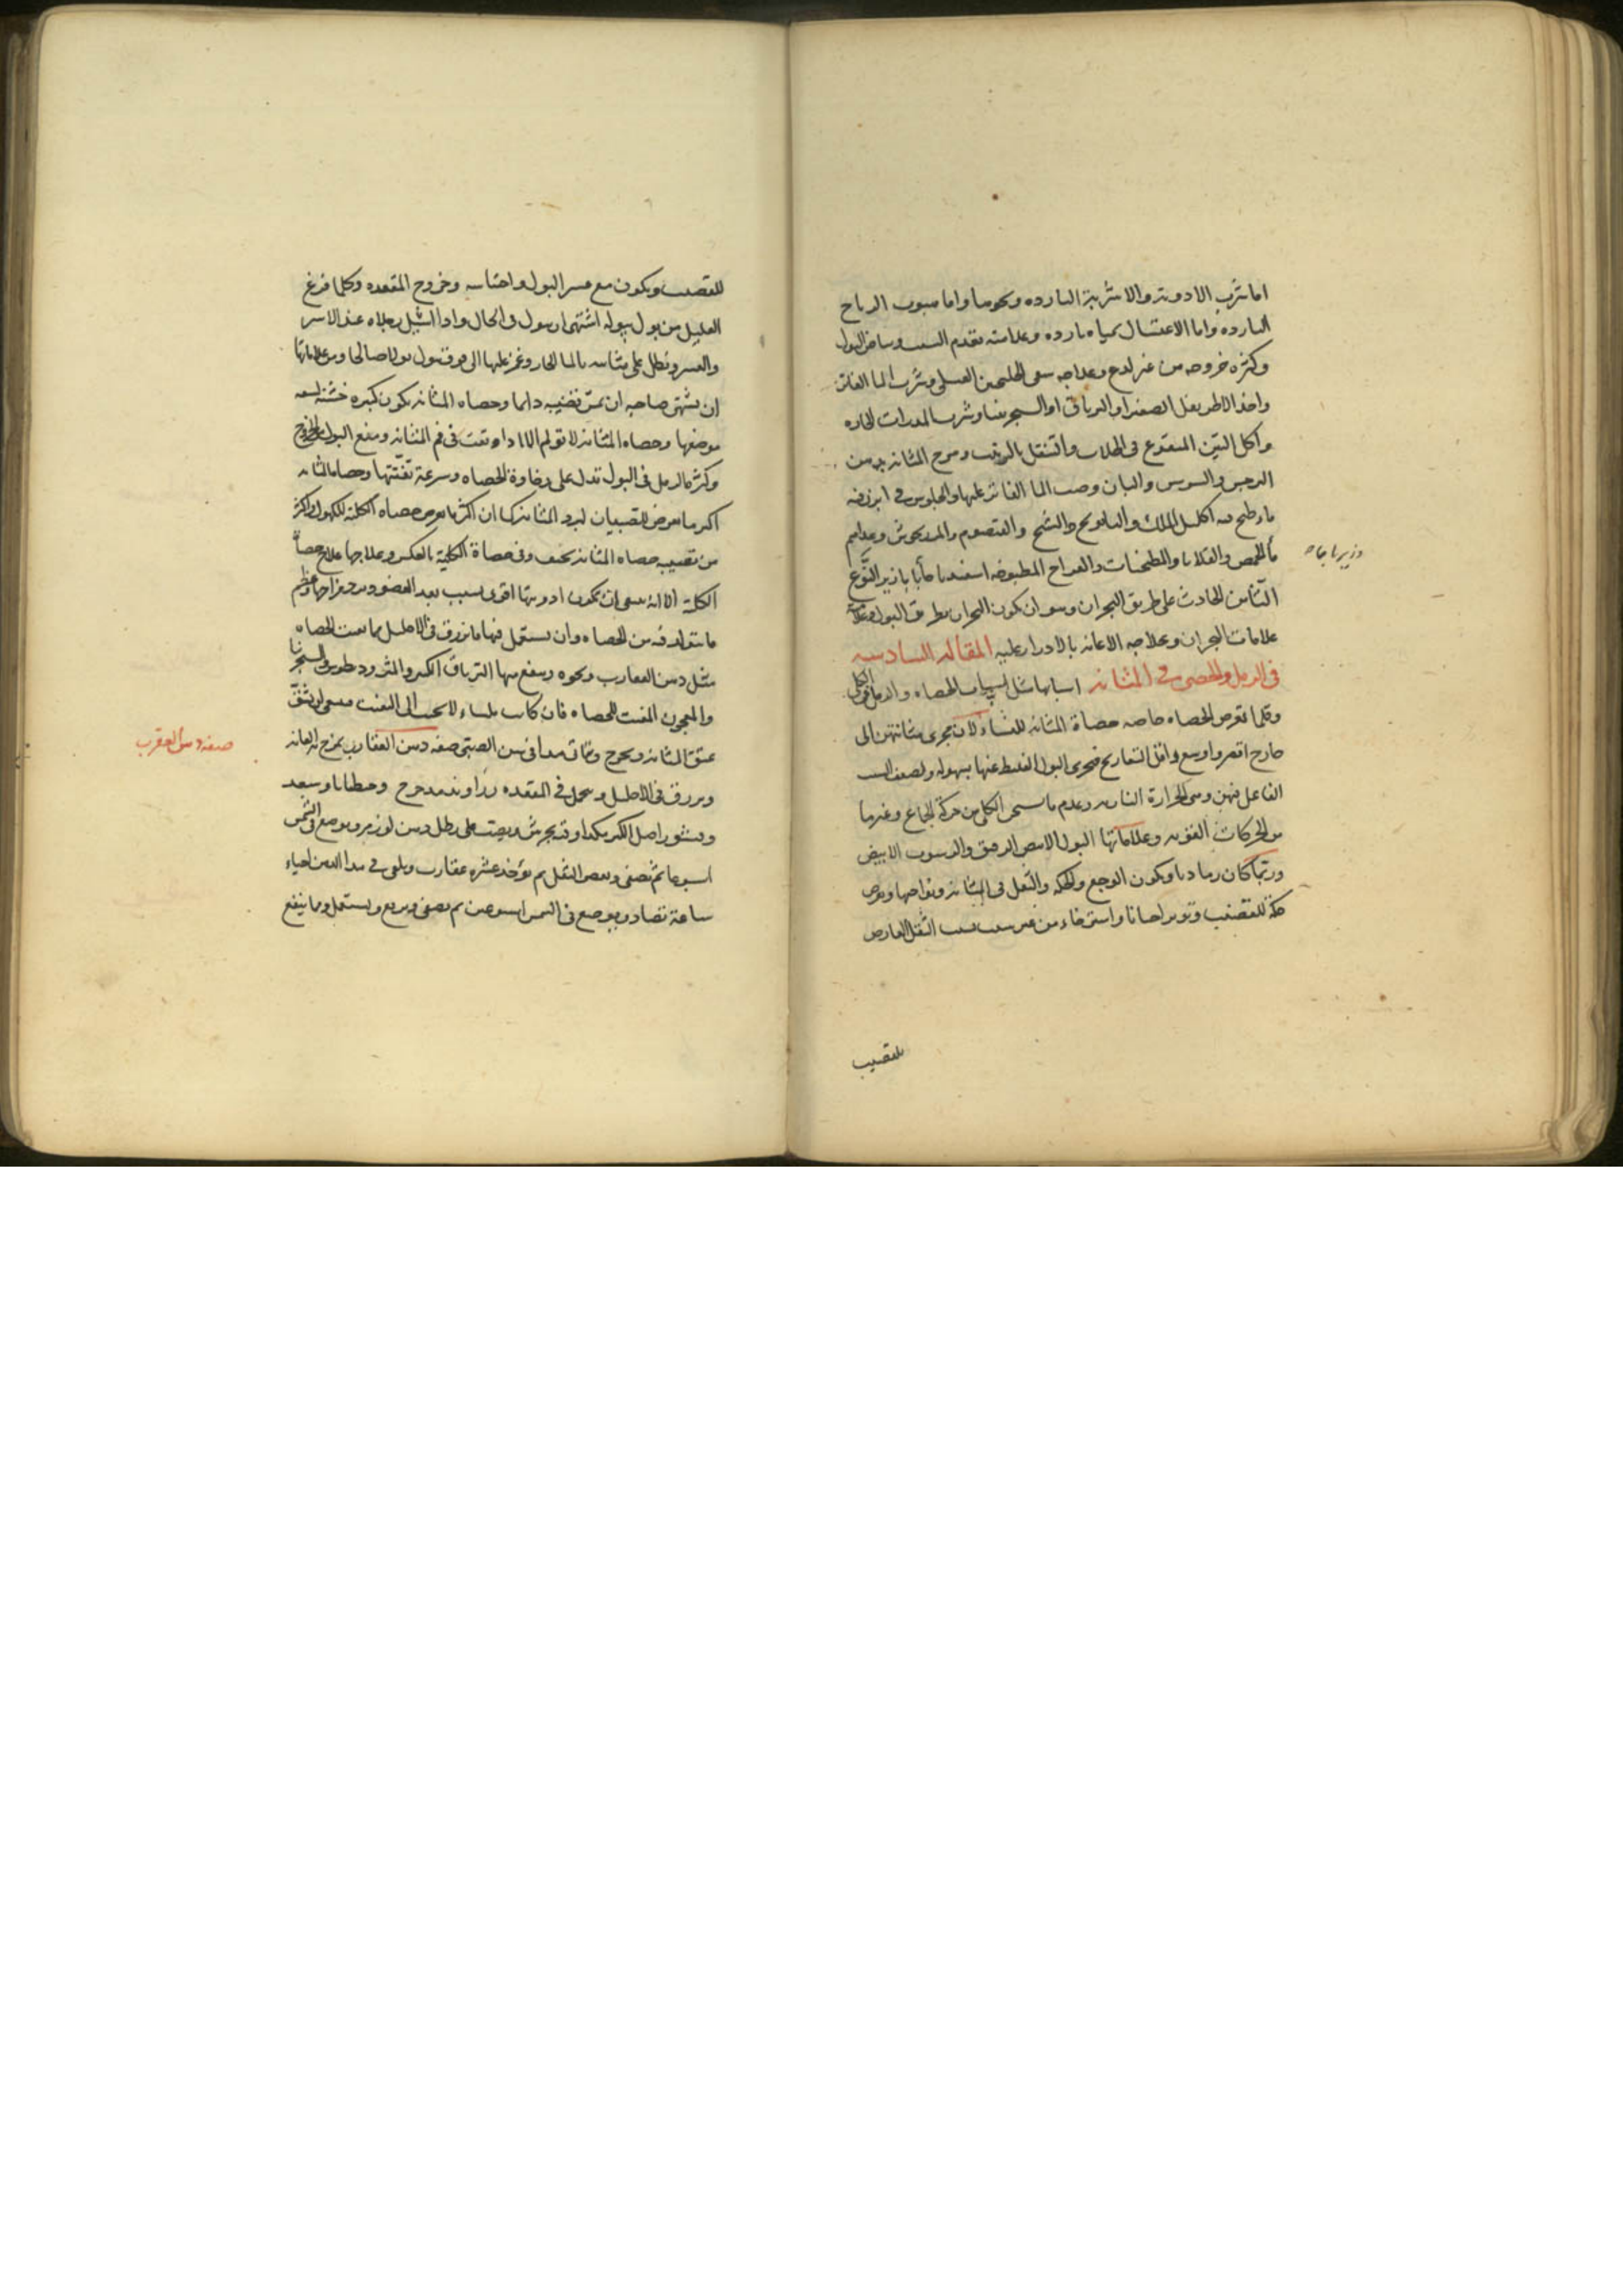 اما شرب الادوية والاشربة الباردة ونحوها واما هبوب الرياح
الباردة واما الاغتسال بمياه باردة وعلامته تقدم السبب وبياض البول
وكثرة خروجه من غير لدع وعلاجه سقى الجلنجبين العسلى وشرب الما الفاتر
واخذ الاطريفل الصغير او الترياق او السجرينيا وشرب المدرات الحاره
واكل التين المنقوع فى الجلاب والتنقل بالزبيب ومرخ المثانه بدهن
النرجس والسوسن والبان وصب الما الفاتر عليها والجلوس فى ابزن فيه
ما طبخ فيه اكليل الملك والبابونج والشيح والقيصوم والمرزنجوش وغداهم
ما الحمص والقلايا والمطجنات والفراخ المطبوخه اسفيدباجا بابازير النوع
وزيرباجا
الثامن الحادث على طريق البحران وهو ان يكون البحران بطريق البول وعلامته
علامات البحران وعلاجه الاعانه بالادرار عليه المقاله السادسه
فى الرمل والحصى فى المثانه اسبابها مثل اسباب الحصاه والرمل فى الكلى
وقلما تعرض الحصاه خاصه حصاة المثانه للنساء لان مجرى مثانتهن الى
خارج اقصر واوسع واقل التعاريج فيجرى البول الغليظ عنها بسهوله ولضعف السبب
الفاعل فيهن وهى الحرارة الناريه وعدم ما يسخن الكلى من حركة الجماع وغيرها
من الحركات القويه وعلاماتها البول الابيض الرقيق والرسوب الابيض
وربما كان رماديا ويكون الوجع والحكه والثقل فى المثانه ونواحيها ويعرض
حكة للقضيب وتوتر احيانا واسترخاء من غير سبب بسبب الثقل العارض
للقضيب
للقضيب ويكون مع عسر البول واحتباسه وخروج المقعده وكلما فرغ
العليل من بول يبوله اشتهى ان يبول فى الحال واذا اشيل رجلاه عند الاسر
والعسر ونطل على مثانته بالما الحار وغمز عليها الى فوق يبول بولا صالحا ومن علاماتها
ان يشتهى صاحبه ان يمس قضيبه دايما وحصاه المثانه يكون كبيره خشنه لسعه
موضعها وحصاه المثانه لا تولم الا اذا وقعت فى فم المثانه ومنع البول من الخروج
وكثرة الرمل فى البول تدل على رخاوة الحصاه وسرعة تفتتها وحصاه المثانه
اكثر ما تعرض للصبيان لبرد المثانه كما ان اكثر ما يعرض حصاه الكليه للكهول واكثر
من تصيبه حصاه المثانه نحيف وفى حصاة الكلية بالعكس وعلاجها علاج حصاة
الكلية الا انه ينبغى ان يكون ادويتها اقوى بسبب بعد العضو وبرد مزاجها وعظم
ما يتولد فيه من الحصاه وان يستعمل فيها ما يزرق فى الاحليل مما يفتت الحصاه
مثل دهن العقارب ونحوه وينفع منها الترياق الكبير والمثروديطوس والسجرنيا
والمعجون المفتت للحصاه فان كانت ملساء لا يجيب الى التفتت فينبغى ان يشق
عنق المثانه ويخرج صفة دهن العقارب يمرخ به العانه
صفة دهن العقرب
ويزرق فى الاحليل ويتحمل فى المقعده زراوند مدحرج وجنطيانا وسعد
وقشور اصل الكبر اوقيه يجرش ويصب على رطل دهن لوز مر ويوضع فى الشمس
اسبوعا ثم يصفى ويعصر الثفل ثم يوخذ عشره عقارب ويلقى فى هذا الدهن احياء
ساعة تصاد ويوضع فى الشمس اسبوعين ثم يصفى ويرفع ويستعمل ومما ينفع